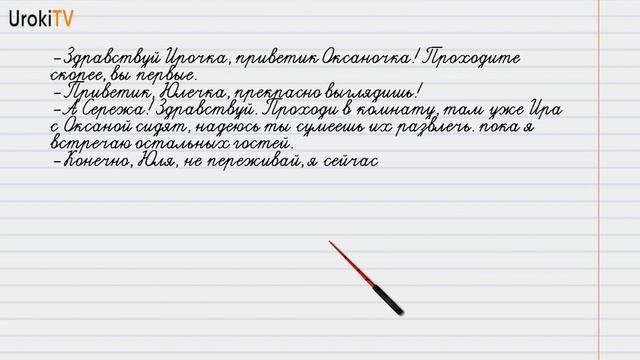 UrokiTV
-Здравствуй Ирочка, приветик Оксаночка! Проходите
скорее, вы первые.
-Приветик, Юлечка, прекрасно выглядишь!
-А Сережа! Здравствуй. Проходи в комнату, там уже Ира
с Оксаной сидят, надеюсь ты сумеешь их развлечь. пока я
встречаю остальных гостей.
-Конечно, Юля, не переживай, я сейчас